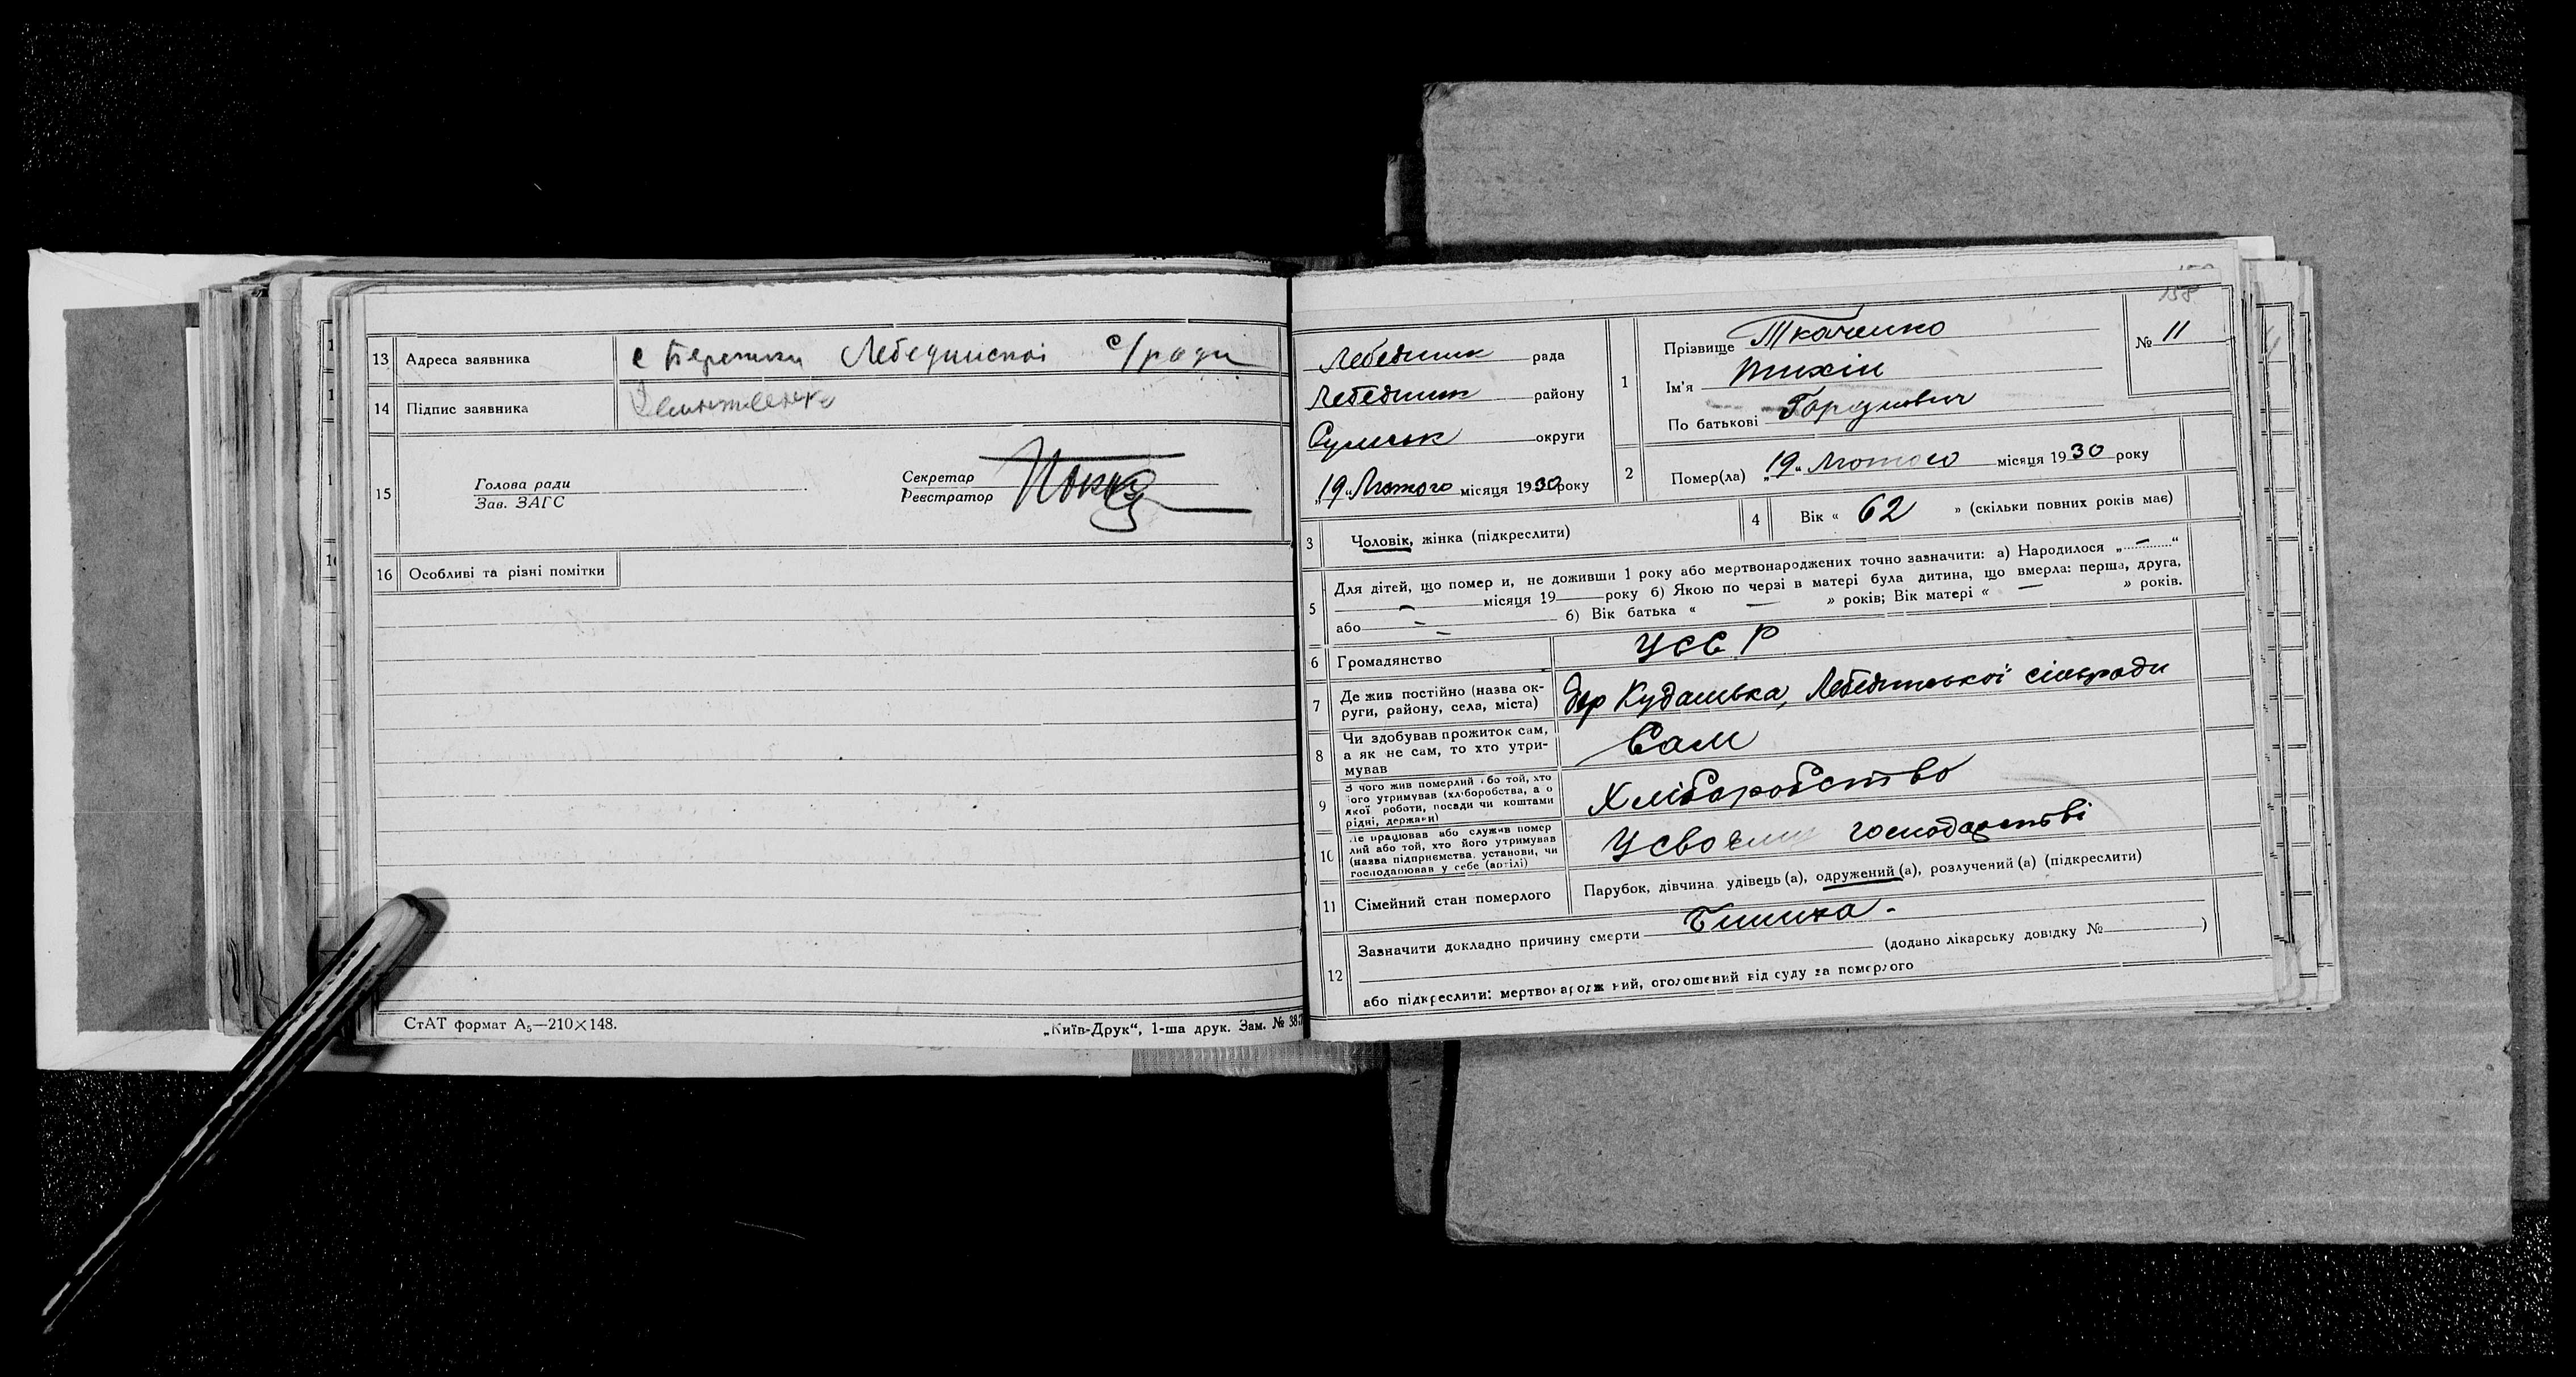 13 Адреса заявника с Бережки Лебединскої с/ради
14 Підпис заявника
15 Голова ради
Зав. ЗАГС
Секретар
Реєстратор
16 Особливі та різні помітки
СтАТ формат А₅—210×148.
„Київ-Друк“, 1-ша друк. Зам. № 38
158
Лебединськ рада
Лебединськ району
Сумськ округи
„19“ Лютого місяця 1930 року
1 Прізвище Ткаченко
Ім'я Тихін
По батькові Гордиович
№ 11
2 Помер(ла) „19“ Лютого місяця 1930 року
3 Чоловік, жінка (підкреслити)
4 Вік « 62 » (скільки повних років має)
5 Для дітей, що помер и, не доживши 1 року або мертвонароджених точно зазначити: а) Народилося „—“
— місяця 19 року б) Якою по черзі в матері була дитина, що вмерла: перша, друга,
або — б) Вік батька « — » років; Вік матері « — » років.
6 Громадянство УССР
7 Де жив постійно (назва ок-
руги, району, села, міста) дер Кудановка, Лебединської сільради
8 Чи здобував прожиток сам,
а як не сам, то хто утри-
мував Сам
9 З чого жив померлий або той, хто
його утримував (хліборобства, а о
якої роботи, посади чи коштами
рідні, держави) Хліборобство
10 Де працював або служив помер
лий або той, хто його утримував
(назва підприємства, установи, чи
господарював у себе (артілі) У своєму господарстві
11 Сімейний стан померлого Парубок, дівчина, удівець (а), одружений (а), розлучений (а) (підкреслити)
12 Зазначити докладно причину смерти
(додано лікарську довідку № )
або підкреслити: мертвонароджений, оголошений від суду за померлого